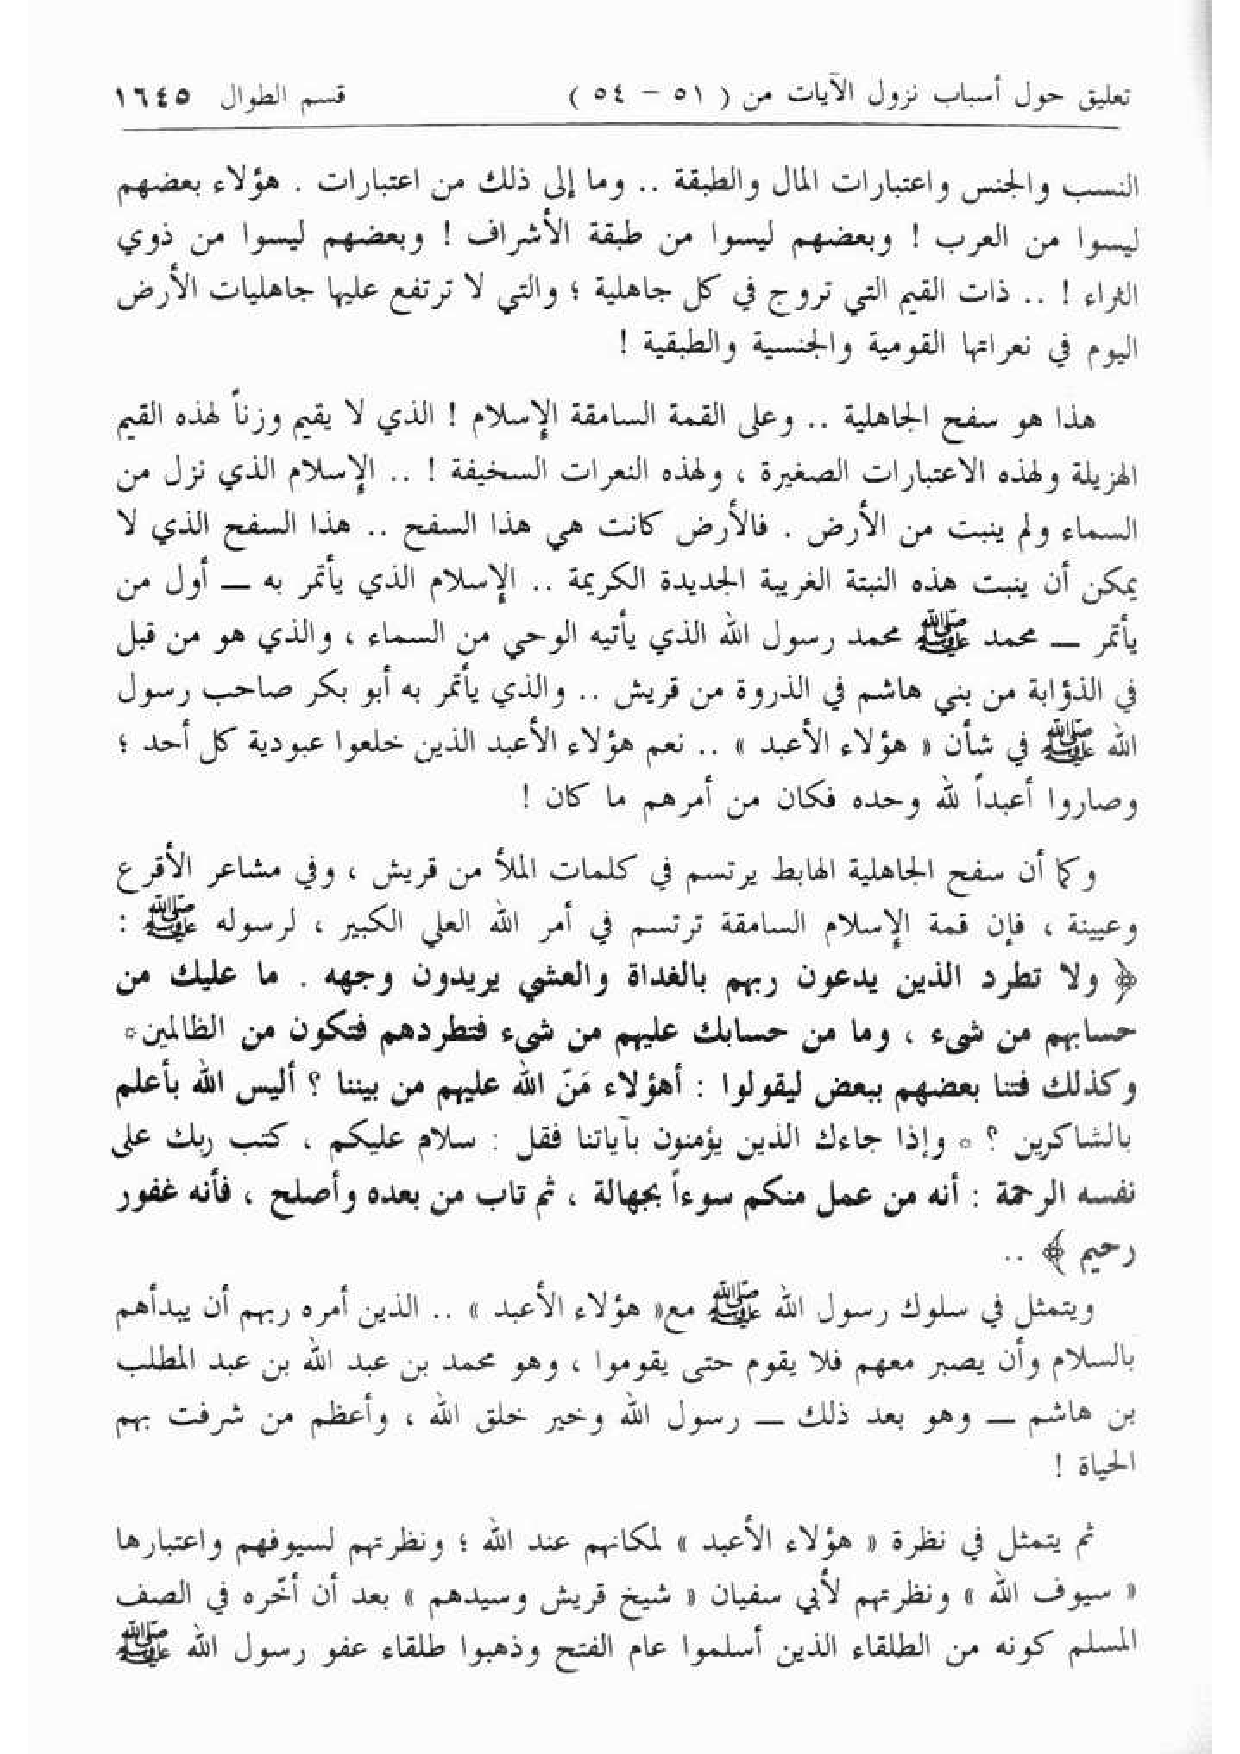 تعليق حول أسباب نزول الآيات من ( ٥١ – ٥٤ ) قسم الطوال ١٦٤٥
النسب والجنس واعتبارات المال والطبقة .. وما إلى ذلك من اعتبارات . هؤلاء بعضهم
ليسوا من العرب ! وبعضهم ليسوا من طبقة الأشراف ! وبعضهم ليسوا من ذوي
الثراء ! .. ذات القيم التي تروج في كل جاهلية ؛ والتي لا ترتفع عليها جاهليات الأرض
اليوم في نعراتها القومية والجنسية والطبقية !
هذا هو سفح الجاهلية .. وعلى القمة السامقة الإسلام ! الذي لا يقيم وزناً لهذه القيم
الهزيلة ولهذه الاعتبارات الصغيرة ، ولهذه النعرات السخيفة ! .. الإسلام الذي نزل من
السماء ولم ينبت من الأرض . فالأرض كانت هي هذا السفح .. هذا السفح الذي لا
يمكن أن ينبت هذه النبتة الغريبة الجديدة الكريمة .. الإسلام الذي يأتمر به ــ أول من
يأتمر ــ محمد ﷺ محمد رسول الله الذي يأتيه الوحي من السماء ، والذي هو من قبل
في الذؤابة من بني هاشم في الذروة من قريش .. والذي يأتمر به أبو بكر صاحب رسول
الله ﷺ في شأن « هؤلاء الأعبد » .. نعم هؤلاء الأعبد الذين خلعوا عبودية كل أحد ؛
وصاروا أعبداً لله وحده فكان من أمرهم ما كان !
وكما أن سفح الجاهلية الهابط يرتسم في كلمات الملأ من قريش ، وفي مشاعر الأقرع
وعيينة ، فإن قمة الإسلام السامقة ترتسم في أمر الله العلي الكبير ، لرسوله ﷺ :
﴿ ولا تطرد الذين يدعون ربهم بالغداة والعشي يريدون وجهه . ما عليك من
حسابهم من شيء ، وما من حسابك عليهم من شيء فتطردهم فتكون من الظالمين *
وكذلك فتنا بعضهم ببعض ليقولوا : أهؤلاء مَنّ الله عليهم من بيننا ؟ أليس الله بأعلم
بالشاكرين ؟ * وإذا جاءك الذين يؤمنون بآياتنا فقل : سلام عليكم ، كتب ربك على
نفسه الرحمة : أنه من عمل منكم سوءاً بجهالة ، ثم تاب من بعده وأصلح ، فأنه غفور
رحيم ﴾ ..
ويتمثل في سلوك رسول الله ﷺ مع« هؤلاء الأعبد » .. الذين أمره ربهم أن يبدأهم
بالسلام وأن يصبر معهم فلا يقوم حتى يقوموا ، وهو محمد بن عبد الله بن عبد المطلب
بن هاشم ــ وهو بعد ذلك ــ رسول الله وخير خلق الله ، وأعظم من شرفت بهم
الحياة !
ثم يتمثل في نظرة « هؤلاء الأعبد » لمكانهم عند الله ؛ ونظرتهم لسيوفهم واعتبارها
« سيوف الله » ونظرتهم لأبي سفيان « شيخ قريش وسيدهم » بعد أن أخّره في الصف
المسلم كونه من الطلقاء الذين أسلموا عام الفتح وذهبوا طلقاء عفو رسول الله ﷺ